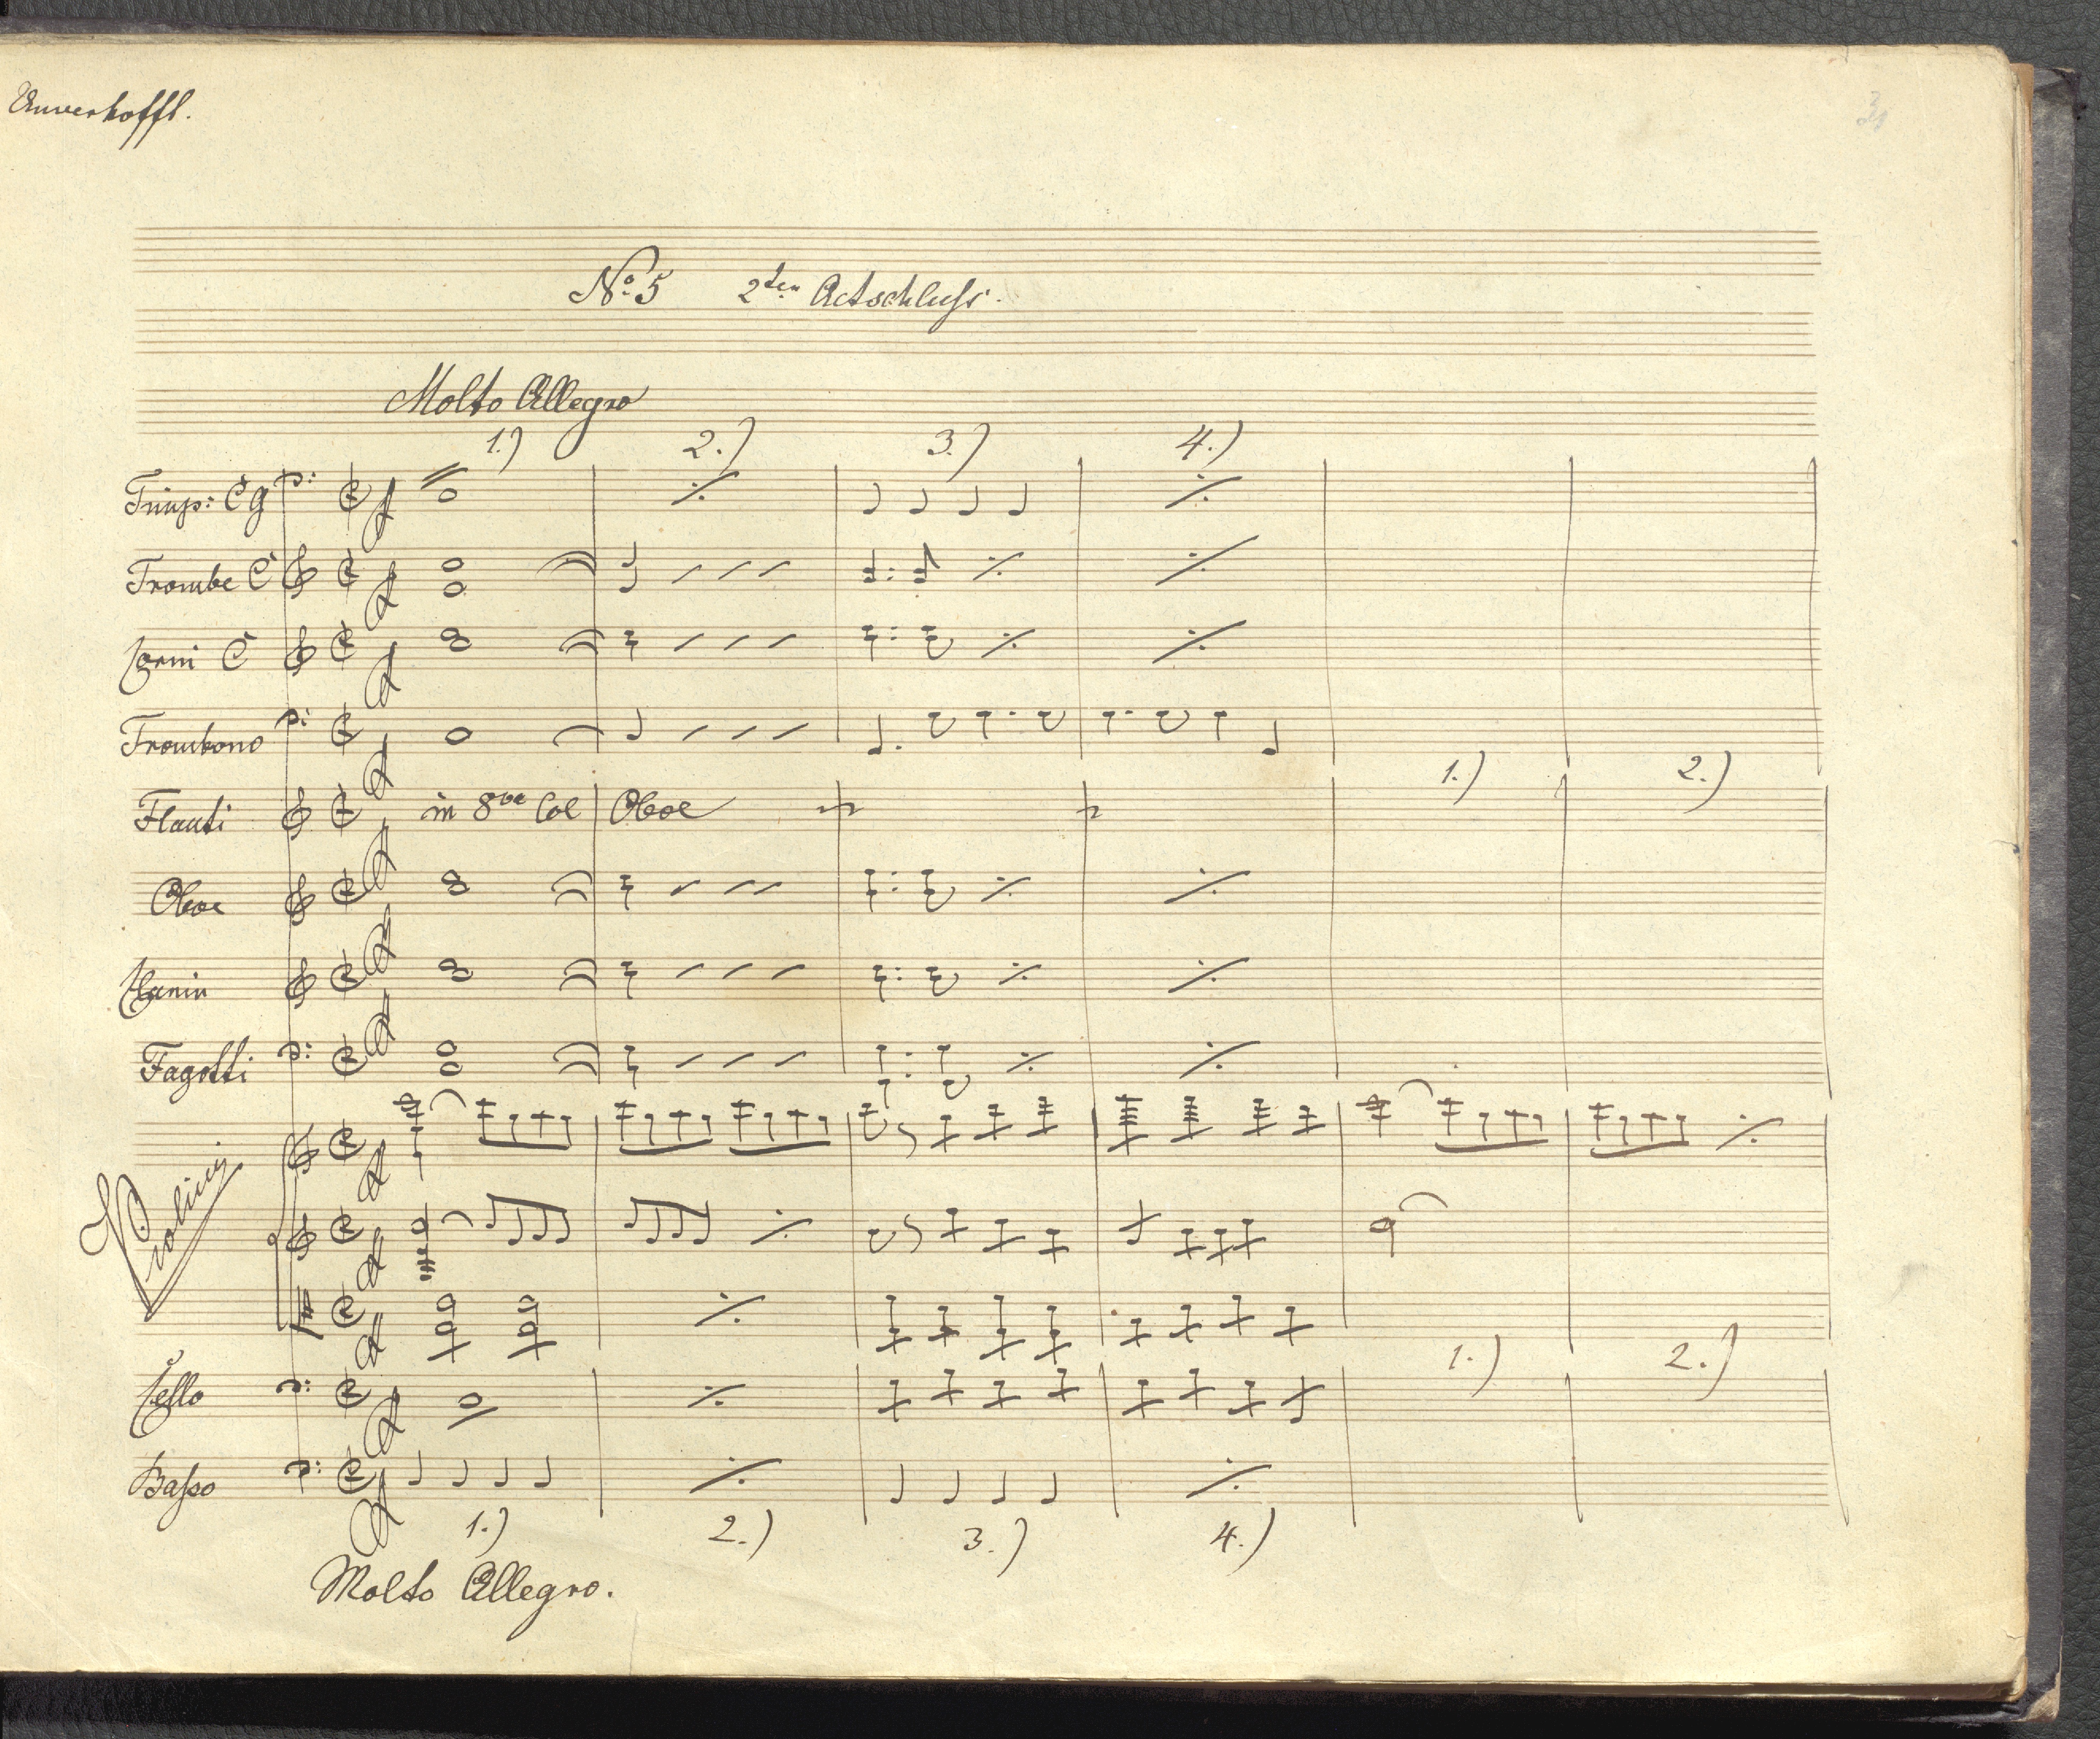 Unverhofft.
No. 5 2ten Actschluss.
Molto Allegro
1.) 2.) 3.) 4.)
Timp: C g
Trombe C
Corni C
Trombono
1.) 2.)
Flauti in 8va Col Oboe
Oboe
Clarin
Fagotti
Violini
1.) 2.)
Cello
Basso
1.) 2.) 3.) 4.)
Molto Allegro.